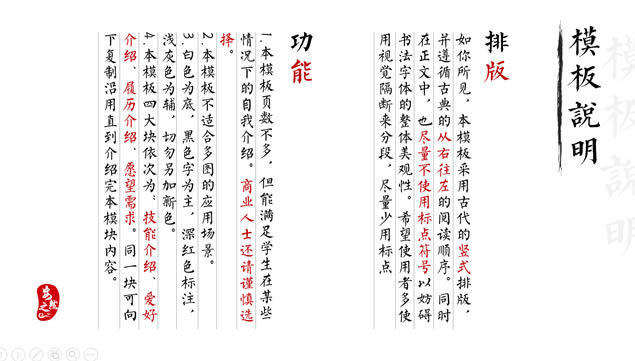 模板說明
排版
如你所见，本模板采用古代的竖式排版，
并遵循古典的从右往左的阅读顺序。同时
在正文中，也尽量不使用标点符号以妨碍
书法字体的整体美观性。希望使用者多使
用视觉隔断来分段，尽量少用标点
功能
1.本模板页数不多，但能满足学生在某些
情况下的自我介绍。商业人士还请谨慎选
择。
2.本模板不适合多图的应用场景。
3.白色为底，黑色字为主，深红色标注，
浅灰色为辅，切勿另加新色。
4.本模板四大块依次为、技能介绍、爱好
介绍、履历介绍、愿望需求。同一块可向
下复制沿用直到介绍完本模块内容。